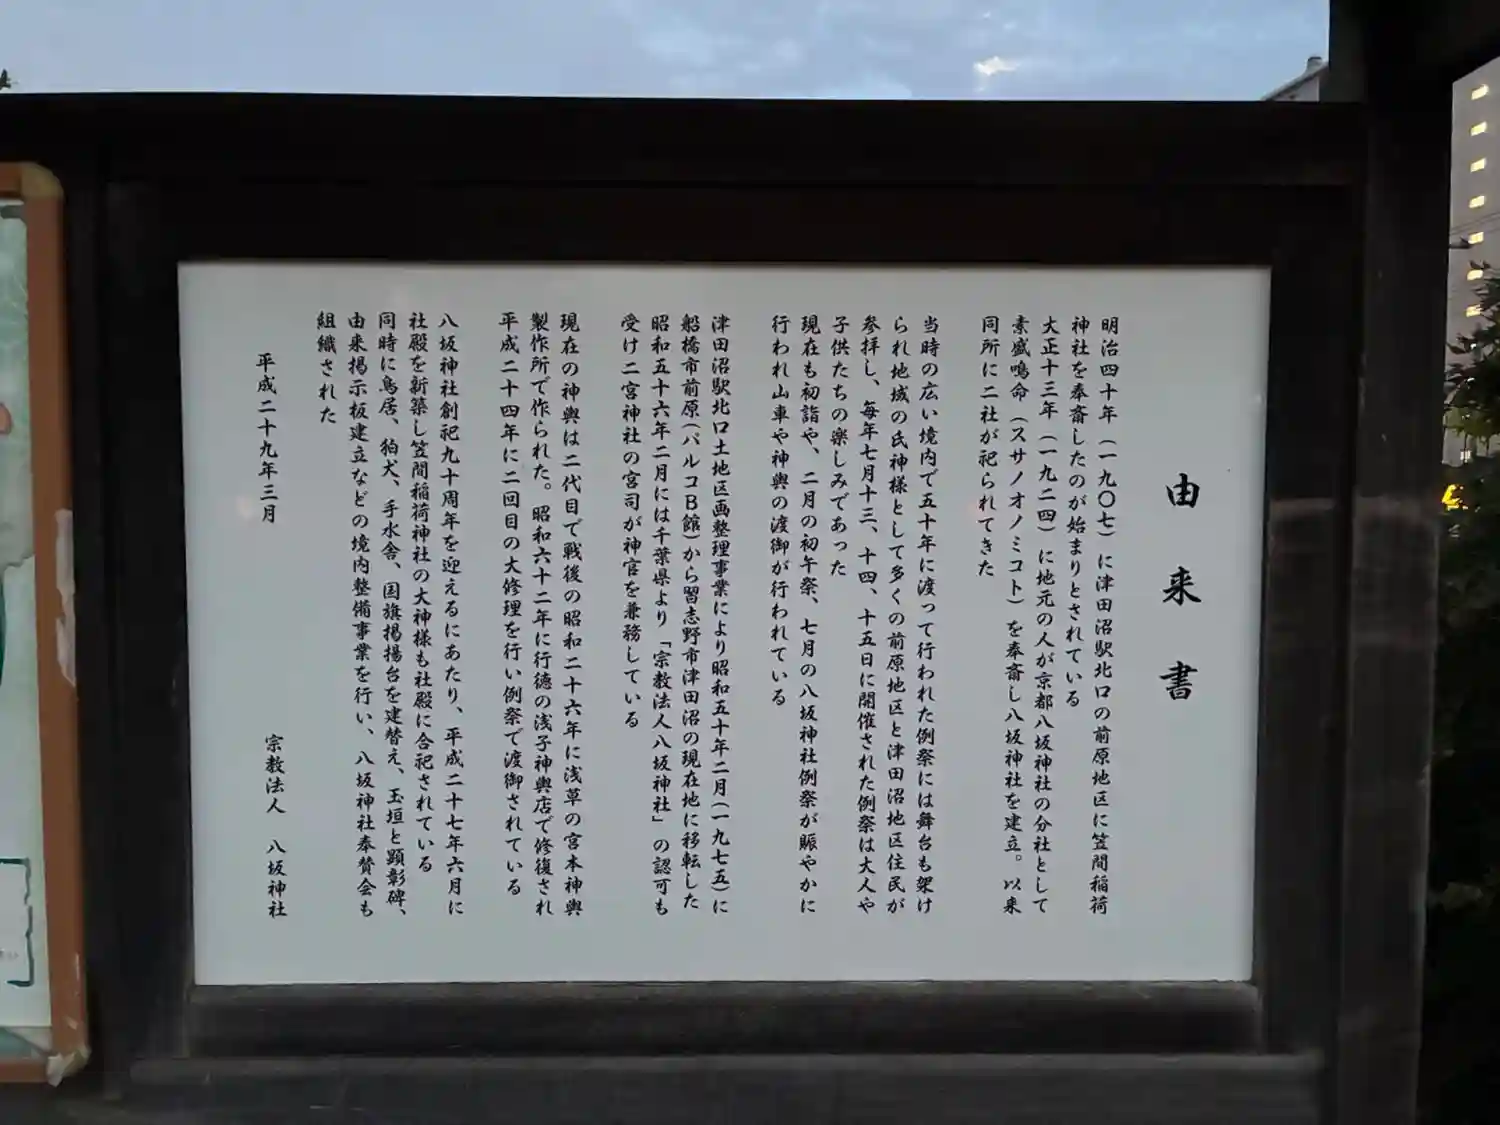 由来書
明治四十年(一九〇七)に津田沼駅北口の前原地区に笠間稲荷
神社を奉斎したのが始まりとされている
大正十三年(一九二四)に地元の人が京都八坂神社の分社として
素盛鳴命(スサノオノミコト)を奉斎し八坂神社を建立。以来
同所に二社が祀られてきた
当時の広い境内で五十年に渡って行われた例祭には舞台も架け
られ地域の氏神様として多くの前原地区と津田沼地区住民が
参拝し、毎年七月十三、十四、十五日に開催された例祭は大人や
子供たちの楽しみであった
現在も初詣や、二月の初午祭、七月の八坂神社例祭が賑やかに
行われ山車や神輿の渡御が行われている
津田沼駅北口土地区画整理事業により昭和五十年二月(一九七五)に
船橋市前原(パルコB館)から習志野市津田沼の現在地に移転した
昭和五十六年二月には千葉県より「宗教法人八坂神社」の認可も
受け二宮神社の宮司が神官を兼務している
現在の神輿は二代目で戦後の昭和二十六年に浅草の宮本神輿
製作所で作られた。昭和六十二年に行徳の浅子神輿店で修復され
平成二十四年に二回目の大修理を行い例祭で渡御されている
八坂神社創祀九十周年を迎えるにあたり、平成二十七年六月に
社殿を新築し笠間稲荷神社の大神様も社殿に合祀されている
同時に鳥居、狛犬、手水舎、国旗掲揚台を建替え、玉垣と顕彰碑、
由来掲示板建立などの境内整備事業を行い、八坂神社奉賛会も
組織された
平成二十九年三月
宗教法人 八坂神社